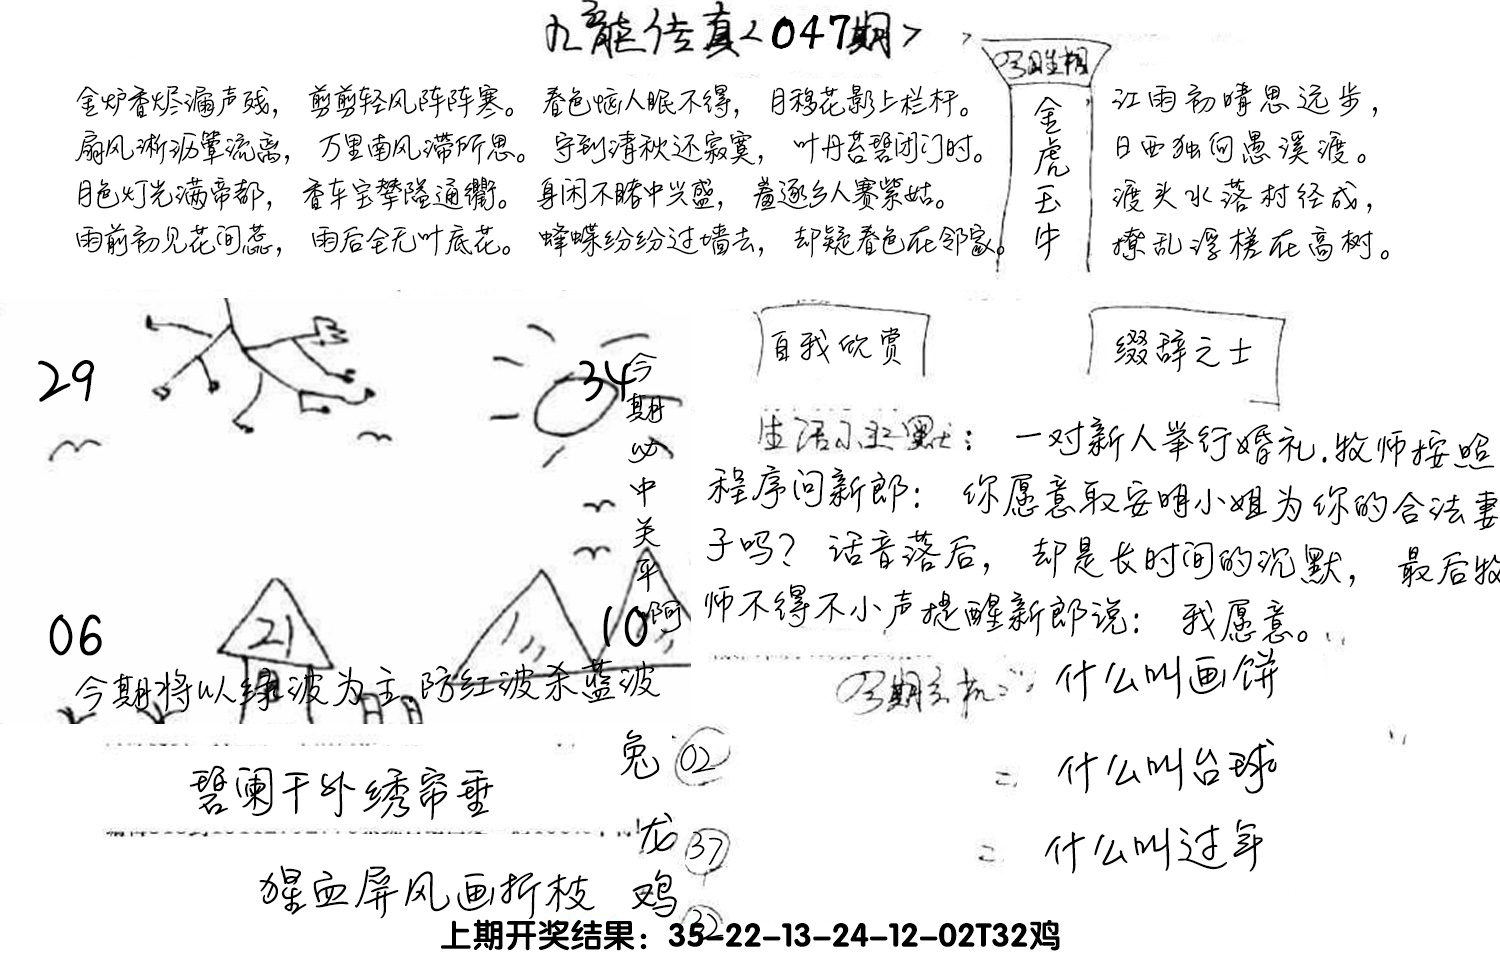 九龙传真<047期>
金炉香烬漏声残，翦翦轻风阵阵寒。春色恼人眠不得，月移花影上栏杆。
扇风淅沥簟流离，万里南风滞所思。守到清秋还寂寞，叶丹苔碧闭门时。
月色灯光满帝都，香车宝辇隘通衢。身闲不睹中兴盛，羞逐乡人赛紫姑。
雨前初见花间蕊，雨后全无叶底花。蜂蝶纷纷过墙去，却疑春色在邻家。
今日生相
金虎玉牛
江雨初晴思远步，
日西独向愚溪渡。
渡头水落村径成，
撩乱浮槎在高树。
29
34
06
21
10
今期必中关平啊
今期将以绿波为主防红波杀蓝波
自我欣赏
缀辞之士
生活小幽默：一对新人举行婚礼.牧师按照
程序问新郎：你愿意取安明小姐为你的合法妻
子吗？话音落后，却是长时间的沉默，最后牧
师不得不小声提醒新郎说：我愿意。
今期玄机二：什么叫画饼
= 什么叫台球
= 什么叫过年
碧阑干外绣帘垂
猩血屏风画折枝
兔 02
龙 37
鸡 32
上期开奖结果：35-22-13-24-12-02T32鸡